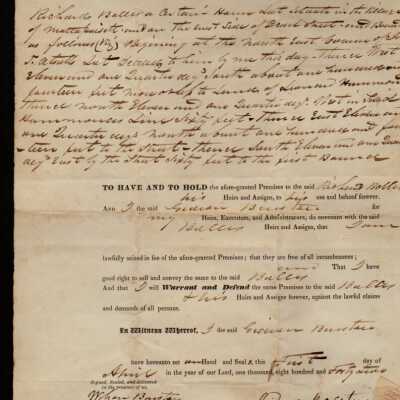 Richard Battis a Certain House Lot situate in the Village
of Mattapoisett and on the East side of Street and Bounded
as follows (Viz) Beginning at the North East Corner of
Lot Deeded to him by me this day - thence West
Eleven and one Quarter degs South about one hundred and
fourteen feet to Land of Hammond
thence North Eleven and one Quarter degs West in said
Hammonds Line Sixty feet - thence East Eleven and
one Quarter degs North about one hundred and four
teen feet to the Street - thence South Eleven and one Quarter
degs East by the Street Sixty feet to the first Bound
TO HAVE AND TO HOLD the afore-granted Premises to the said Richard Battis
his Heirs and Assigns, to his use and behoof forever.
And I the said Gideon for
my Heirs, Executors, and Administrators, do covenant with the said
Battis Heirs and Assigns, that I am
lawfully seized in fee of the afore-granted Premises; that they are free of all incumbrances;
That I have
good right to sell and convey the same to the said Battis
And that I will Warrant and Defend the same Premises to the said Battis
& his Heirs and Assigns forever, against the lawful claims
and demands of all persons.
In Witness Whereof, I the said Gideon
have hereunto set Hand and Seal this first day of
April in the year of our Lord, one thousand eight hundred and
Signed, Sealed, and delivered
in the presence of us,